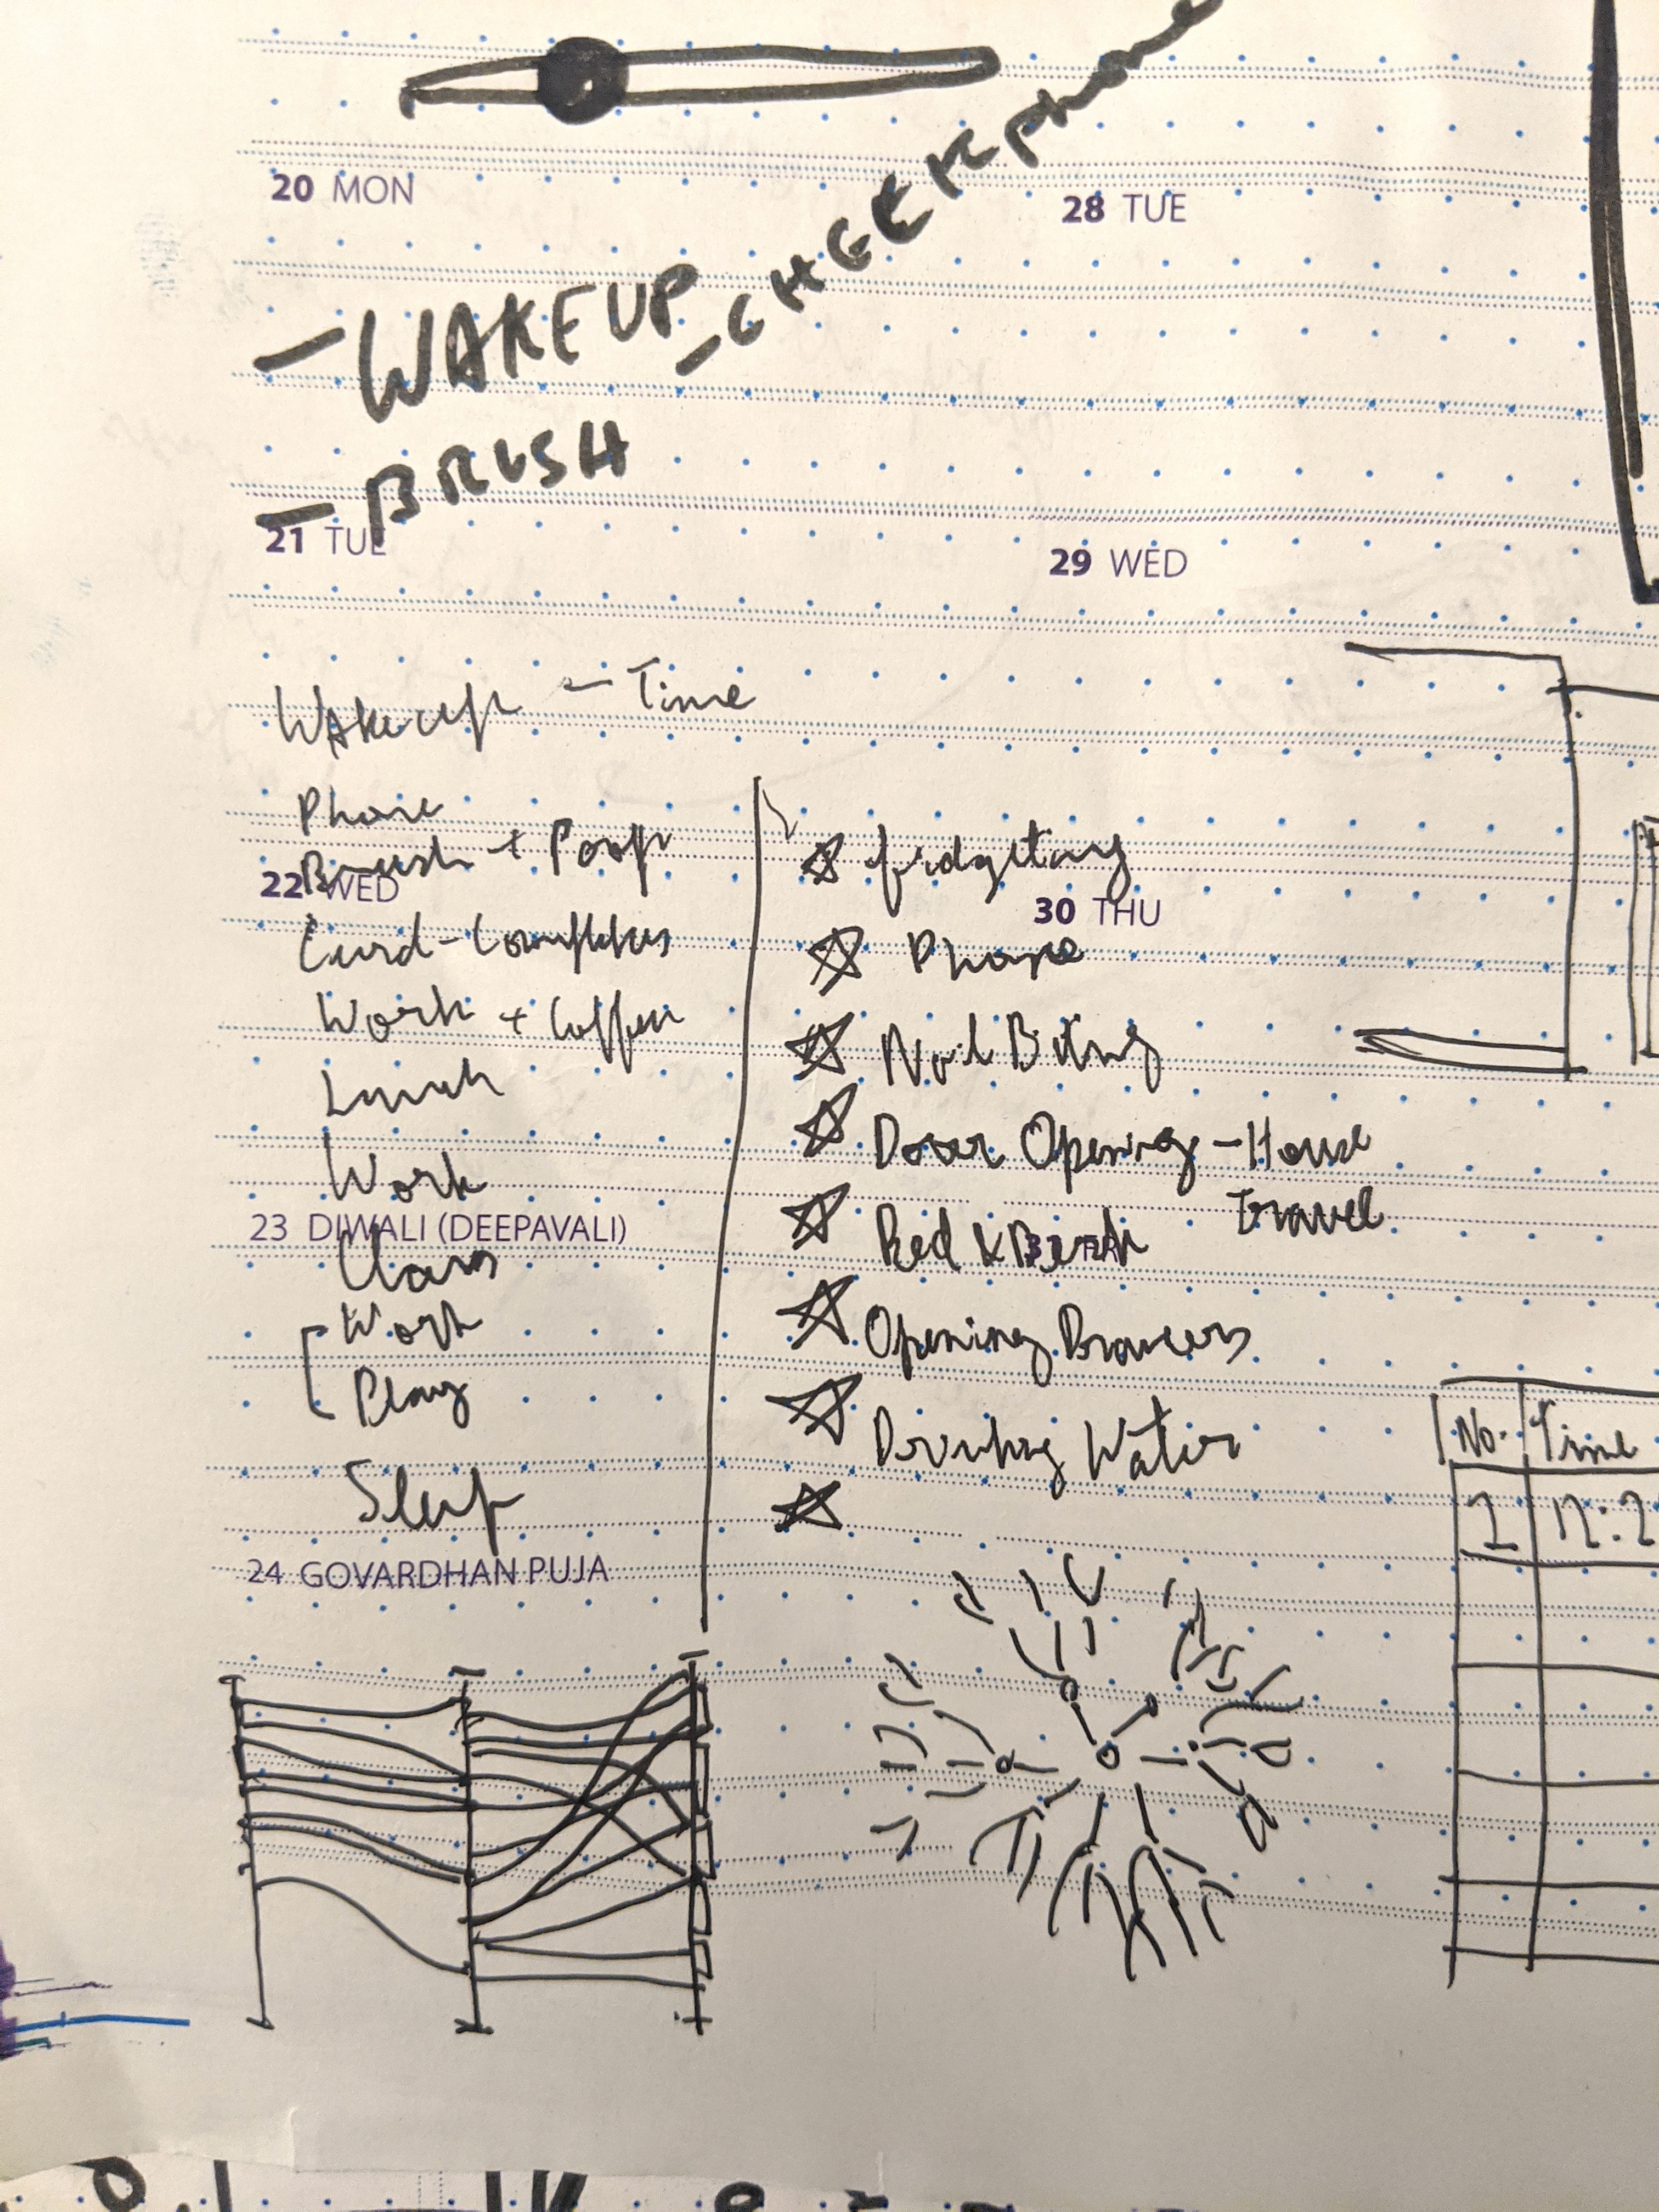 20 MON
28 TUE
- WAKEUP - CHEEK phone
- BRUSH
21 TUE
29 WED
Wakeup - Time
Phone
Brush + Poop
22 WED
Curd -
Work + Coffee
Lunch
Work
23 DIWALI (DEEPAVALI)
Work
Play
Sleep
24 GOVARDHAN PUJA
fidgeting
30 THU
Phone
Nail Biting
Door Opening - House
Travel
Opening
Drinking Water
No. Time
1 12:2